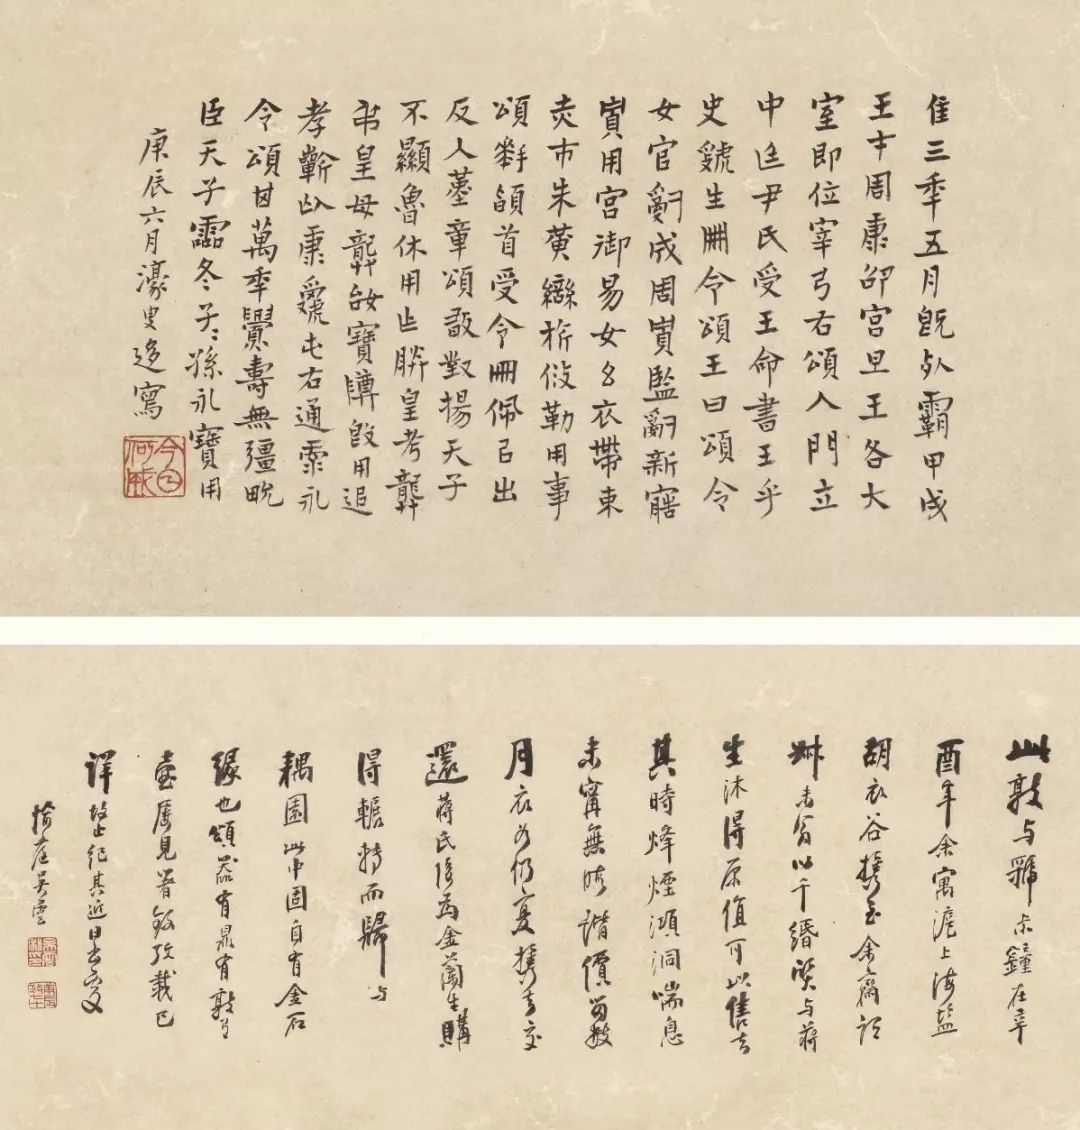 隹三年五月既死霸甲戌
王才周康卲宮旦王各大
室即位宰弓右頌入門立
中廷尹氏受王命書王乎
史虢生冊令頌王曰頌令
女官𤔲成周賈監𤔲新寤
賈用宮御易女幺衣帶束
赤巿朱黃䜌旂攸勒用事
頌拜𩒨首受令冊佩㠯出
反入堇章頌敢對揚天子
不顯魯休用乍朕皇考龔
弔皇母龔姒寶𣪘用追
孝蘄匃康虔屯右通彔永
令頌其萬年釁壽無彊畯
臣天子霝冬子〻孫永寶用
庚辰六月濠叟迻寫
此敦與虢尗鐘在辛
酉年余寓滬上海鹽
胡衣谷攜至余齋詎
尗未翁以千緡質與蔣
生沐得原值可以售去
其時烽煙澒洞喘息
未甯無暇諧價留數
月衣谷仍復攜去交
還蔣氏後為金蘭生購
得輾轉而歸與
耦園此中固自有金石
緣也頌器有鼎有敦有
壺屢見著錄攷載已
詳故止紀其近日去處
愉庭吳雲